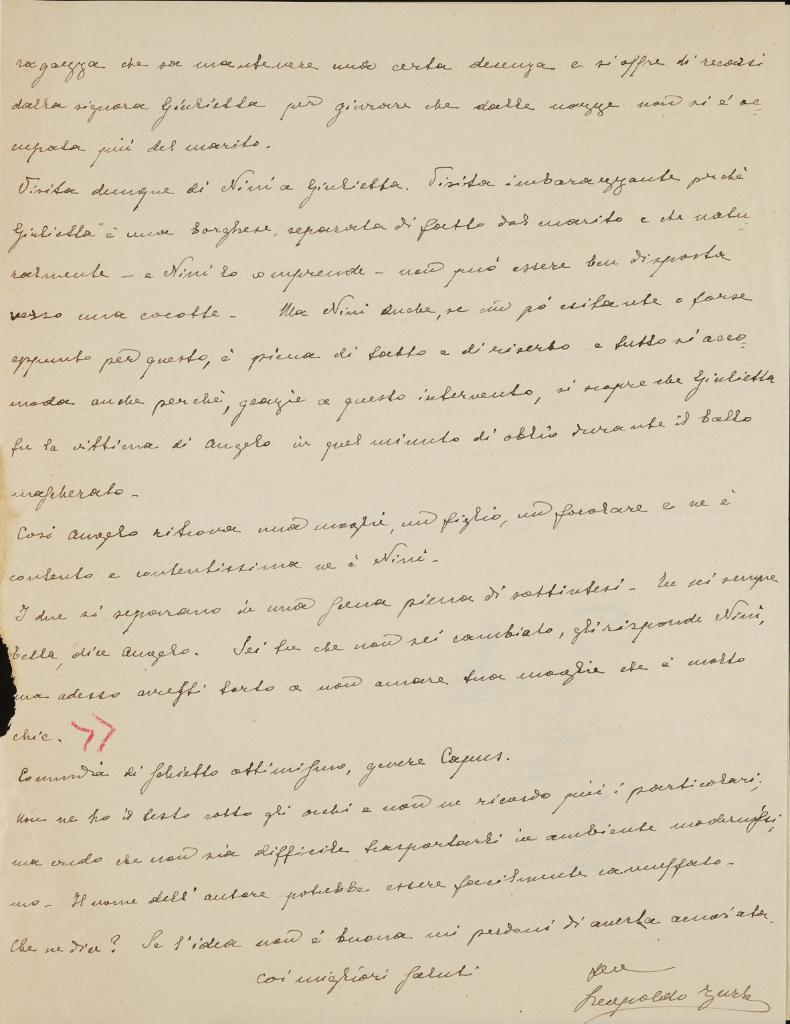 ragazza che sa mantenere una certa decenza e si offre di recarsi
dalla signora Giulietta per giurare che dalle nozze non si è oc=
cupata più del marito.
Visita dunque di Ninì a Giulietta. Visita imbarazzante perché
Giulietta è una borghese, separata di fatto dal marito e che natu=
ralmente — e Ninì lo comprende — non può essere ben disposta
verso una cocotte — Ma Ninì anche, se un pò esitante o forse
appunto per questo, è piena di tatto e di riserbo e tutto si acco=
moda anche perché, grazie a questo intervento, si scopre che Giulietta
fu la vittima di Angelo in quel minuto di oblio durante il ballo
mascherato —
Così Angelo ritrova una moglie, un figlio, un focolare e ne è
contento e contentissima ne è Ninì —
I due si separano in una scena piena di sottintesi — Tu sei sempre
bella, dice Angelo. Sei tu che non sei cambiato, gli risponde Ninì,
ma adesso avresti torto a non amare tua moglie che è molto
chic. »
Commedia di schietto ottimismo, genere Capus.
Non ne ho il testo sotto gli occhi e non ne ricordo più i particolari;
ma credo che non sia difficile trasportarli in ambiente modernissi=
mo — Il nome dell'autore potrebbe essere facilmente camuffato —
Che ne dice? Se l'idea non è buona mi perdoni di averla
coi migliori saluti
Leopoldo Zurlo